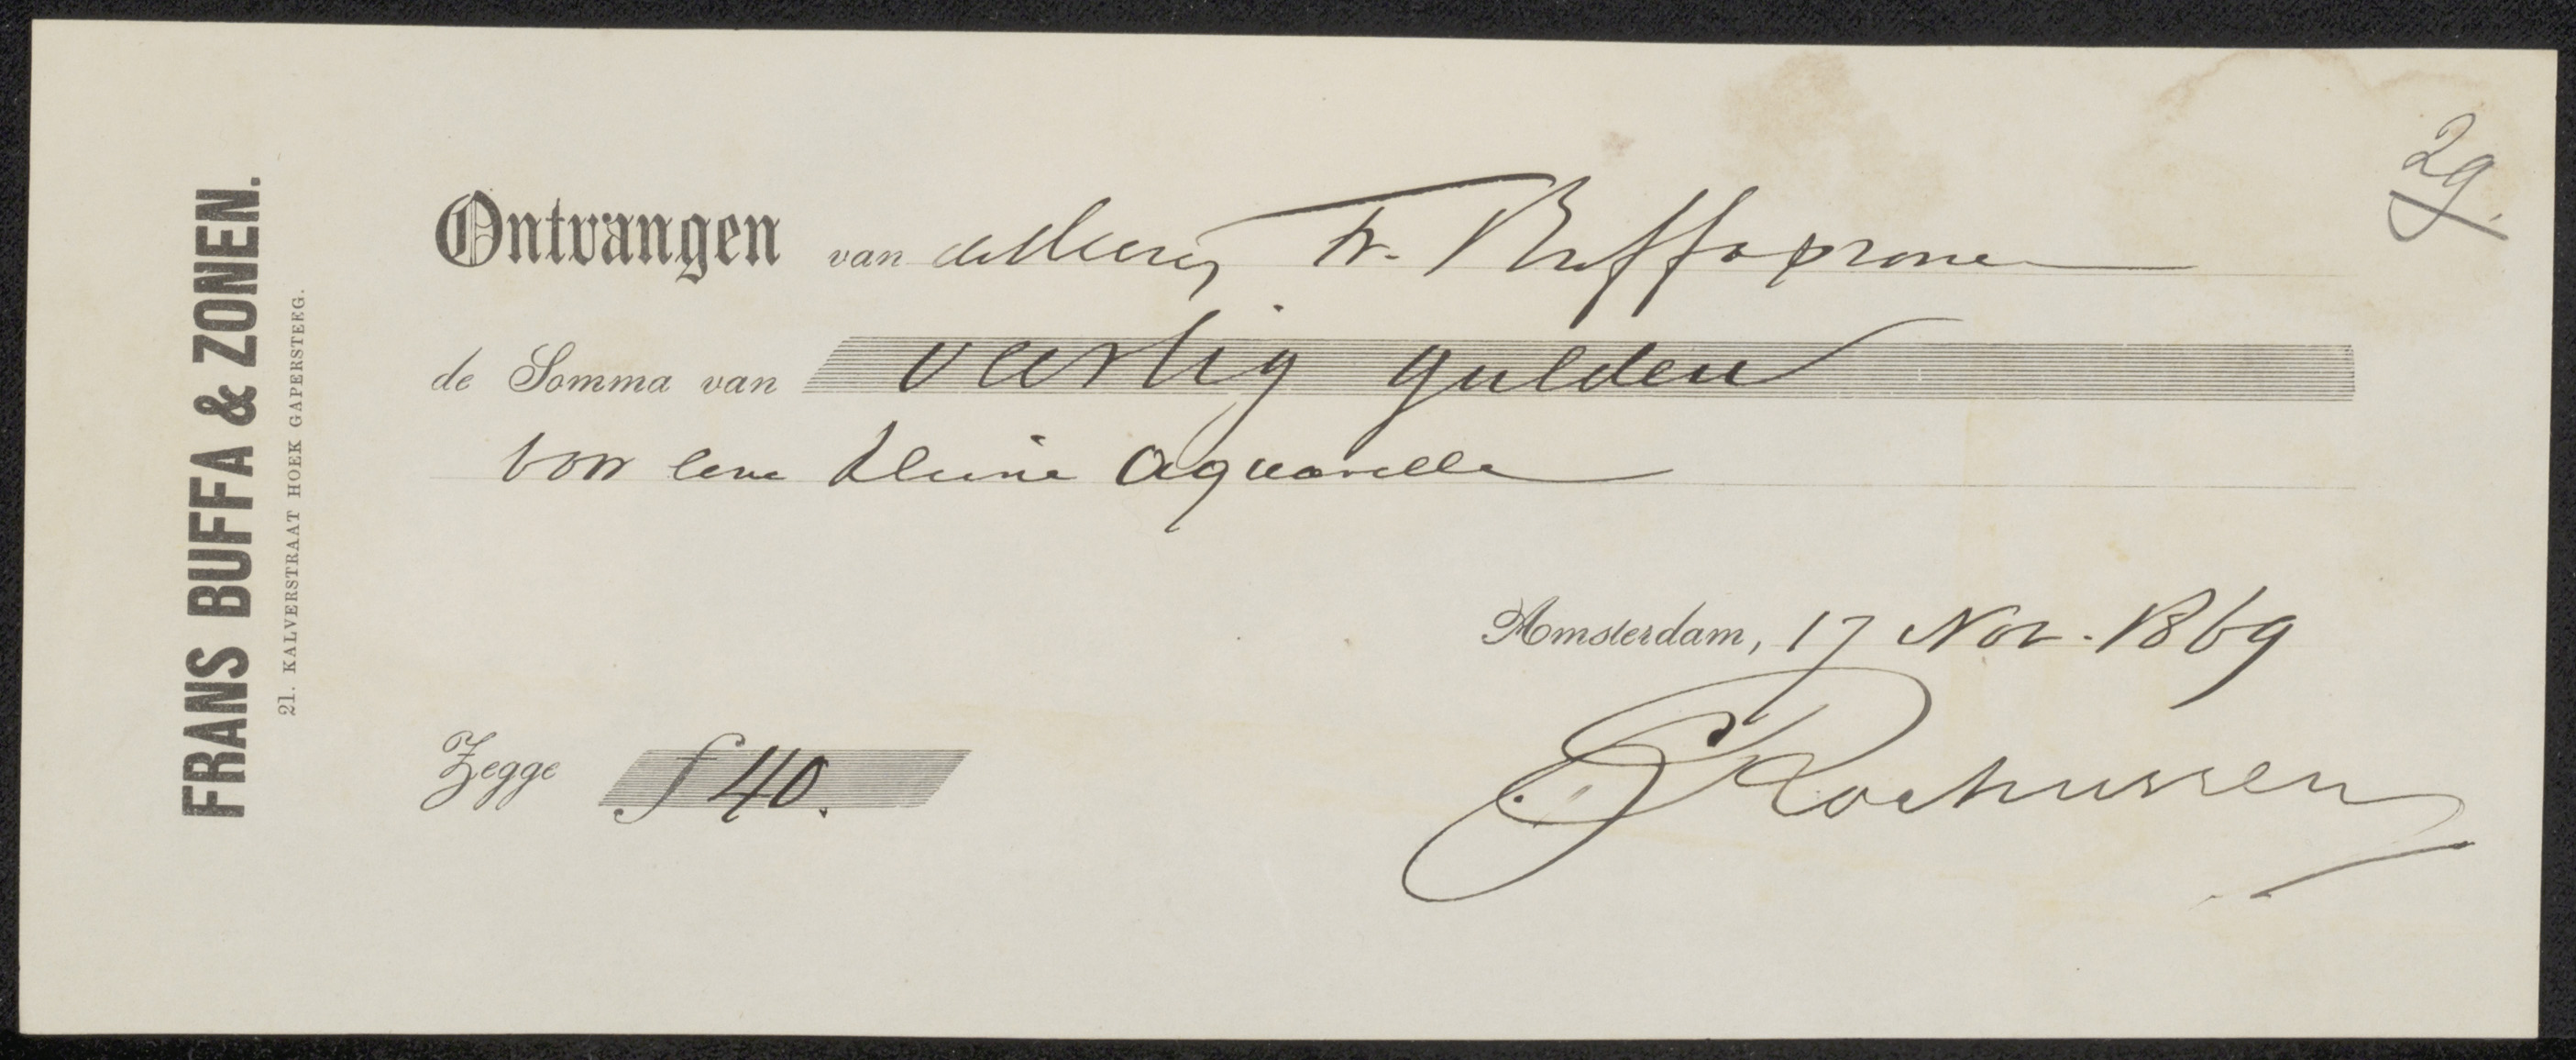 FRANS BUFFA & ZONEN.
21. KALVERSTRAAT HOEK GAPERSTEEG.
29.
Ontvangen van de Heeren Fr. Buffa & zonen
de Somma van veertig gulden
voor eene kleine aquarelle
Amsterdam, 17 Nov. 1869
Zegge f 40.
C Rochussen